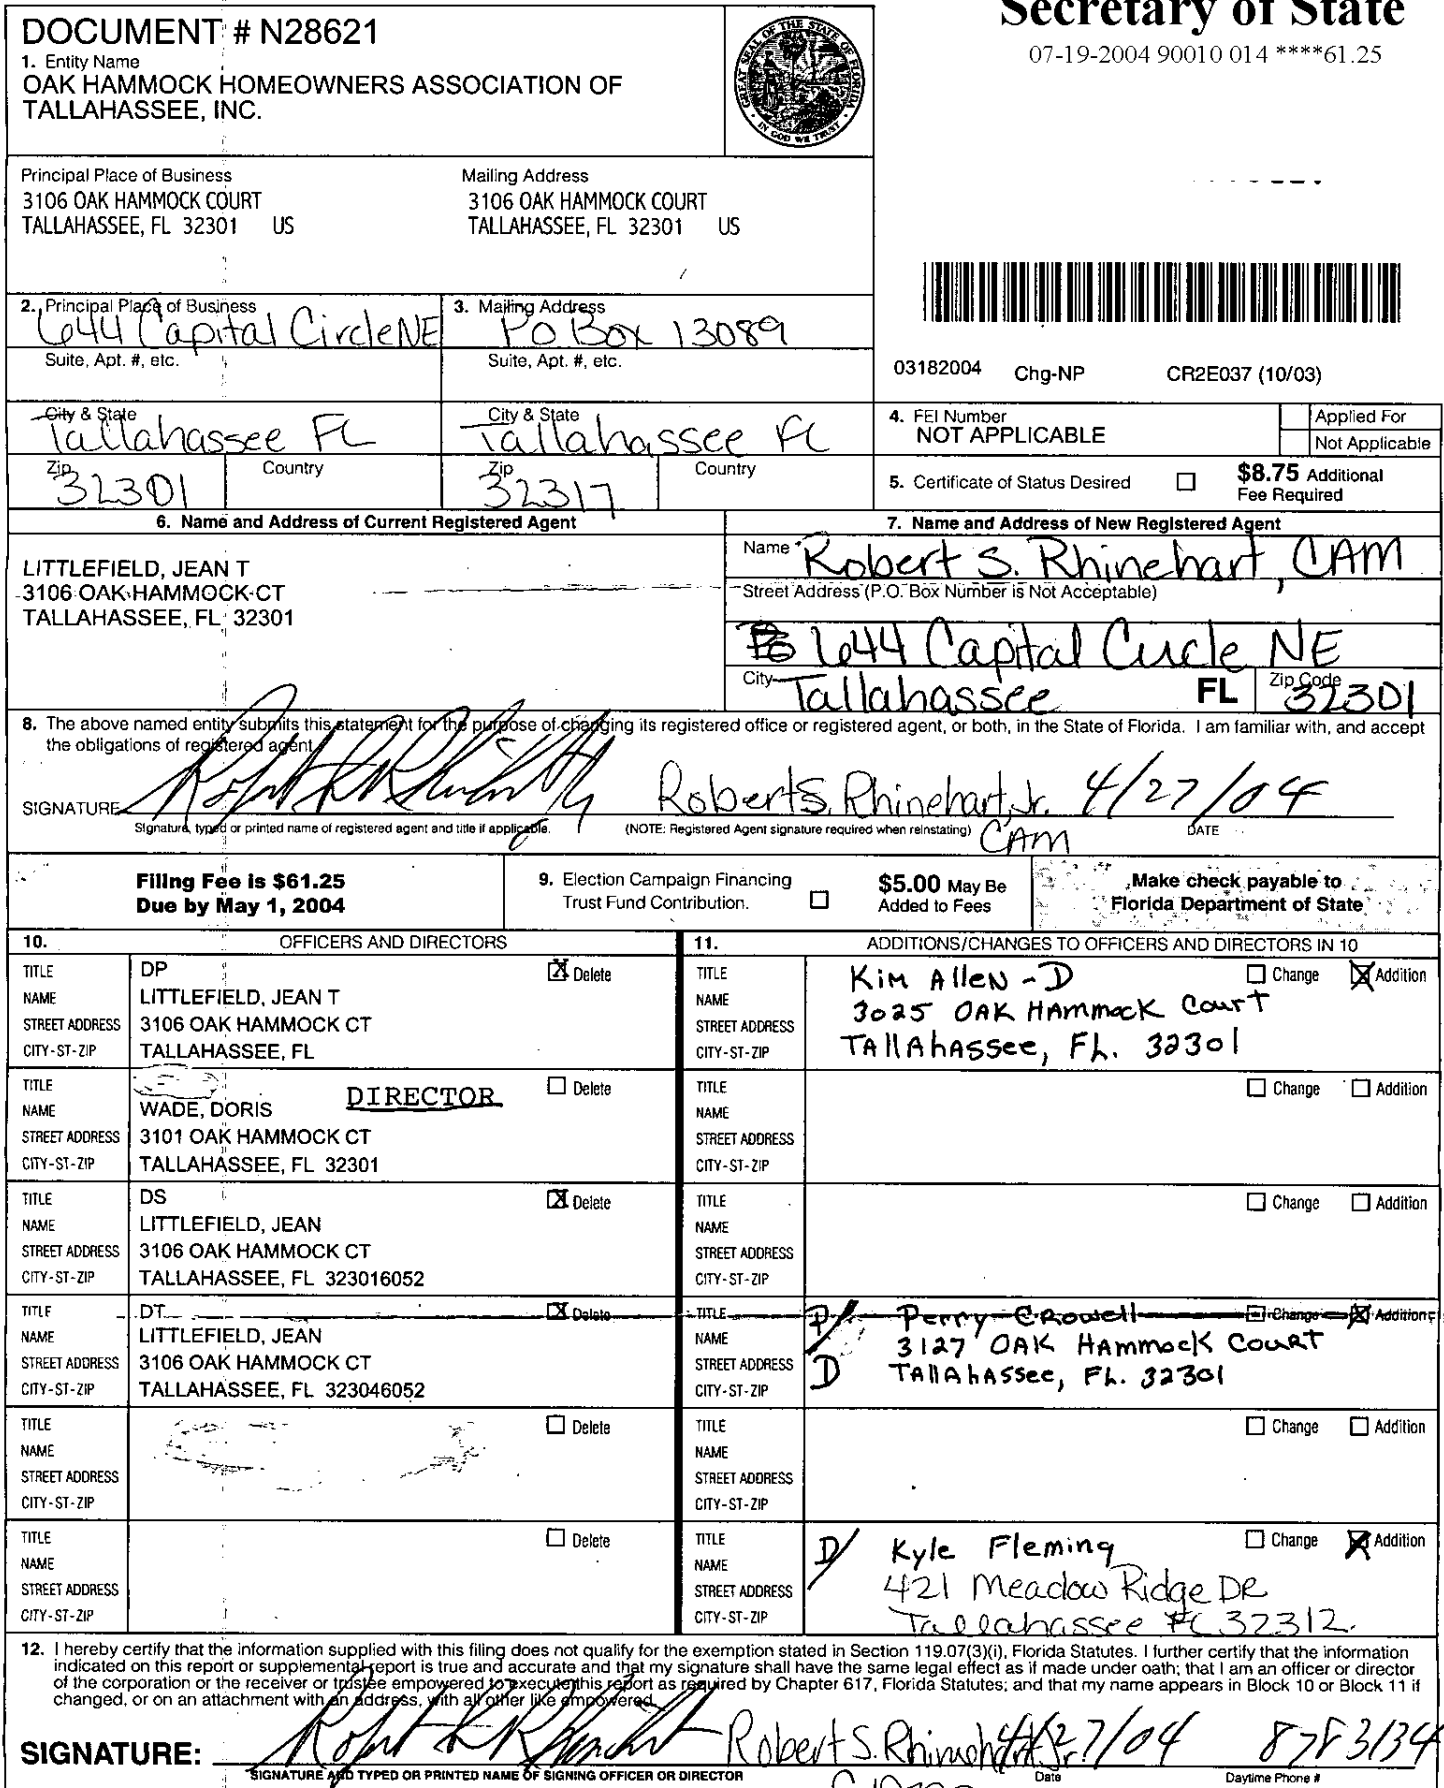 Secretary of State
07-19-2004 90010 014 ****61.25
DOCUMENT # N28621
1. Entity Name
OAK HAMMOCK HOMEOWNERS ASSOCIATION OF
TALLAHASSEE, INC.
GREAT SEAL OF THE STATE OF FLORIDA
IN GOD WE TRUST
Principal Place of Business
3106 OAK HAMMOCK COURT
TALLAHASSEE, FL 32301 US
Mailing Address
3106 OAK HAMMOCK COURT
TALLAHASSEE, FL 32301 US
2. Principal Place of Business
644 Capital Circle NE
3. Mailing Address
PO Box 13089
Suite, Apt. #, etc.
Suite, Apt. #, etc.
03182004 Chg-NP CR2E037 (10/03)
City & State
Tallahassee FL
City & State
Tallahassee FL
4. FEI Number
NOT APPLICABLE
Applied For
Not Applicable
Zip
32301
Country
Zip
32317
Country
5. Certificate of Status Desired
$8.75 Additional
Fee Required
6. Name and Address of Current Registered Agent
LITTLEFIELD, JEAN T
3106 OAK HAMMOCK CT
TALLAHASSEE, FL 32301
7. Name and Address of New Registered Agent
Name Robert S. Rhinehart, CAM
Street Address (P.O. Box Number is Not Acceptable)
644 Capital Circle NE
City Tallahassee FL Zip Code 32301
8. The above named entity submits this statement for the purpose of changing its registered office or registered agent, or both, in the State of Florida. I am familiar with, and accept
the obligations of registered agent.
SIGNATURE Robert S. Rhinehart, Jr. 4/27/04
CAM
Signature, typed or printed name of registered agent and title if applicable. (NOTE: Registered Agent signature required when reinstating) DATE
Filing Fee is $61.25
Due by May 1, 2004
9. Election Campaign Financing
Trust Fund Contribution.
$5.00 May Be
Added to Fees
Make check payable to
Florida Department of State
10. OFFICERS AND DIRECTORS
TITLE DP X Delete
NAME LITTLEFIELD, JEAN T
STREET ADDRESS 3106 OAK HAMMOCK CT
CITY-ST-ZIP TALLAHASSEE, FL
TITLE DIRECTOR Delete
NAME WADE, DORIS
STREET ADDRESS 3101 OAK HAMMOCK CT
CITY-ST-ZIP TALLAHASSEE, FL 32301
TITLE DS X Delete
NAME LITTLEFIELD, JEAN
STREET ADDRESS 3106 OAK HAMMOCK CT
CITY-ST-ZIP TALLAHASSEE, FL 323016052
TITLE DT X Delete
NAME LITTLEFIELD, JEAN
STREET ADDRESS 3106 OAK HAMMOCK CT
CITY-ST-ZIP TALLAHASSEE, FL 323046052
TITLE Delete
NAME
STREET ADDRESS
CITY-ST-ZIP
TITLE Delete
NAME
STREET ADDRESS
CITY-ST-ZIP
11. ADDITIONS/CHANGES TO OFFICERS AND DIRECTORS IN 10
TITLE Kim Allen - D Change X Addition
NAME
STREET ADDRESS 3025 OAK HAMMOCK Court
CITY-ST-ZIP TAllAhAssee, FL. 32301
TITLE Change Addition
NAME
STREET ADDRESS
CITY-ST-ZIP
TITLE Change Addition
NAME
STREET ADDRESS
CITY-ST-ZIP
TITLE Perry Crowell Change X Addition
NAME 3127 OAK HAmmock Court
STREET ADDRESS D TAllAhAssee, FL. 32301
CITY-ST-ZIP
TITLE Change Addition
NAME
STREET ADDRESS
CITY-ST-ZIP
TITLE D/ Kyle Fleming Change X Addition
NAME
STREET ADDRESS 421 Meadow Ridge DR
CITY-ST-ZIP Tallahassee FL 32312.
12. I hereby certify that the information supplied with this filing does not qualify for the exemption stated in Section 119.07(3)(i), Florida Statutes. I further certify that the information
indicated on this report or supplemental report is true and accurate and that my signature shall have the same legal effect as if made under oath; that I am an officer or director
of the corporation or the receiver or trustee empowered to execute this report as required by Chapter 617, Florida Statutes; and that my name appears in Block 10 or Block 11 if
changed, or on an attachment with an address, with all other like empowered.
SIGNATURE: Robert S. Rhinehart Jr. 4/27/04 8783134
SIGNATURE AND TYPED OR PRINTED NAME OF SIGNING OFFICER OR DIRECTOR Date Daytime Phone #